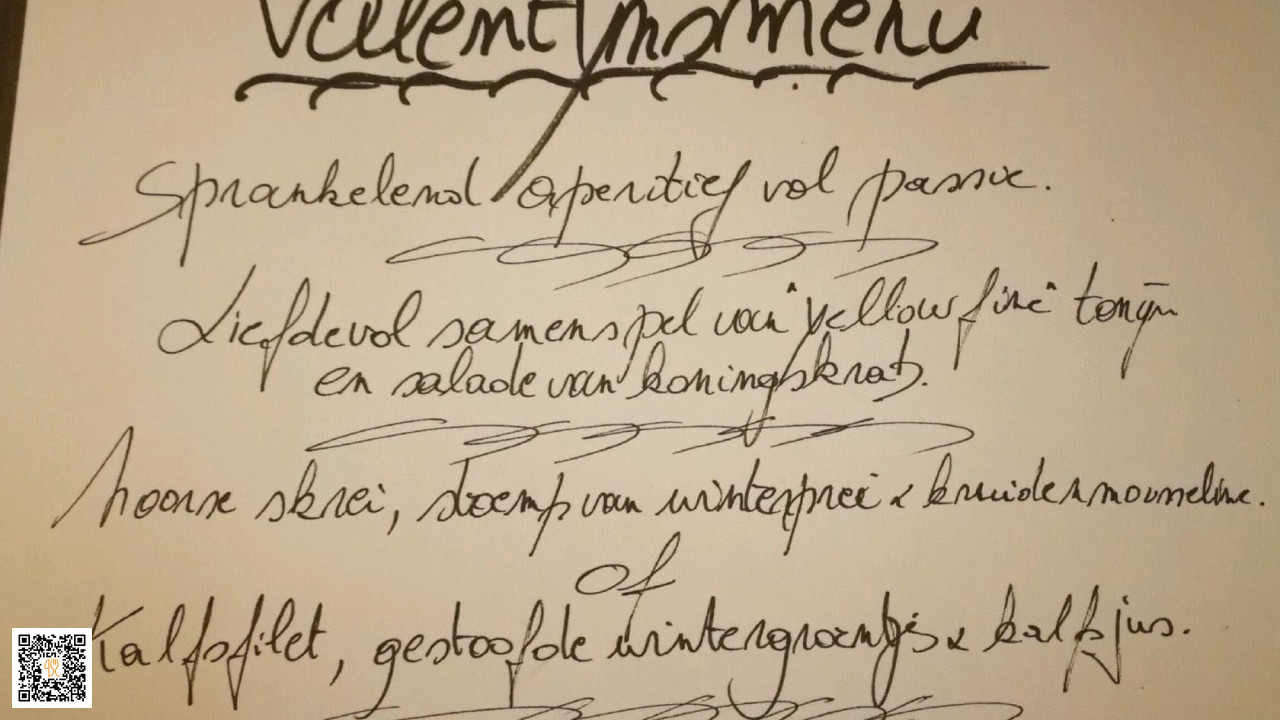 Valentijnsmenu
Sprankelend aperitief vol passie.
Liefdevol samenspel van "yellow fine" tonijn
en salade van koningskrab.
Noorse skrei, stoemp van winterprei & kruidenmousseline.
of
Kalfsfilet, gestoofde wintergroentjes & kalfsjus.